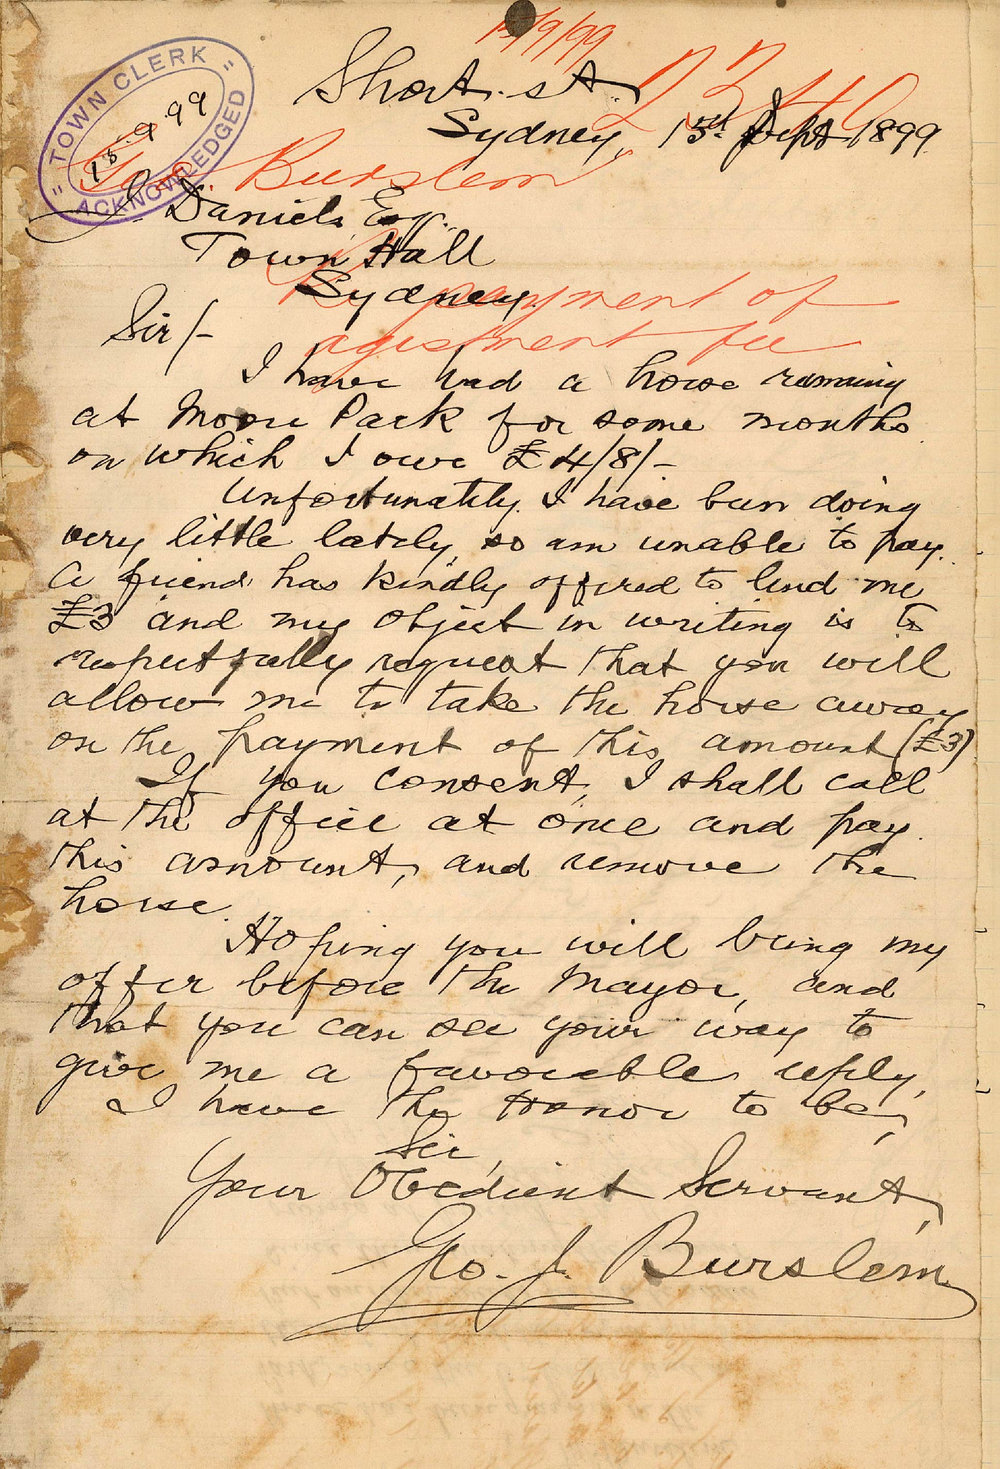 15/9/99
"TOWN CLERK"
15·9·99
ACKNOWLEDGED
Short. st.
Sydney, 15th Sept 1899
Burslem
Daniels, Esq.
Town Hall
Sydney.
payment of
agistment fee
Sir/-
I have had a horse running
at Moore Park for some months
on which I owe £4/8/-
Unfortunately I have been doing
very little lately, so am unable to pay.
A friend has kindly offered to lend me
£3 and my object in writing is to
respectfully request that you will
allow me to take the horse away
on the payment of this amount (£3)
If you consent, I shall call
at the office at once and pay
this amount, and remove the
horse.
Hoping you will bring my
offer before the Mayor, and
that you can see your way to
give me a favorable reply,
I have the Honor to be,
Sir,
Your Obedient Servant,
Geo. J. Burslem